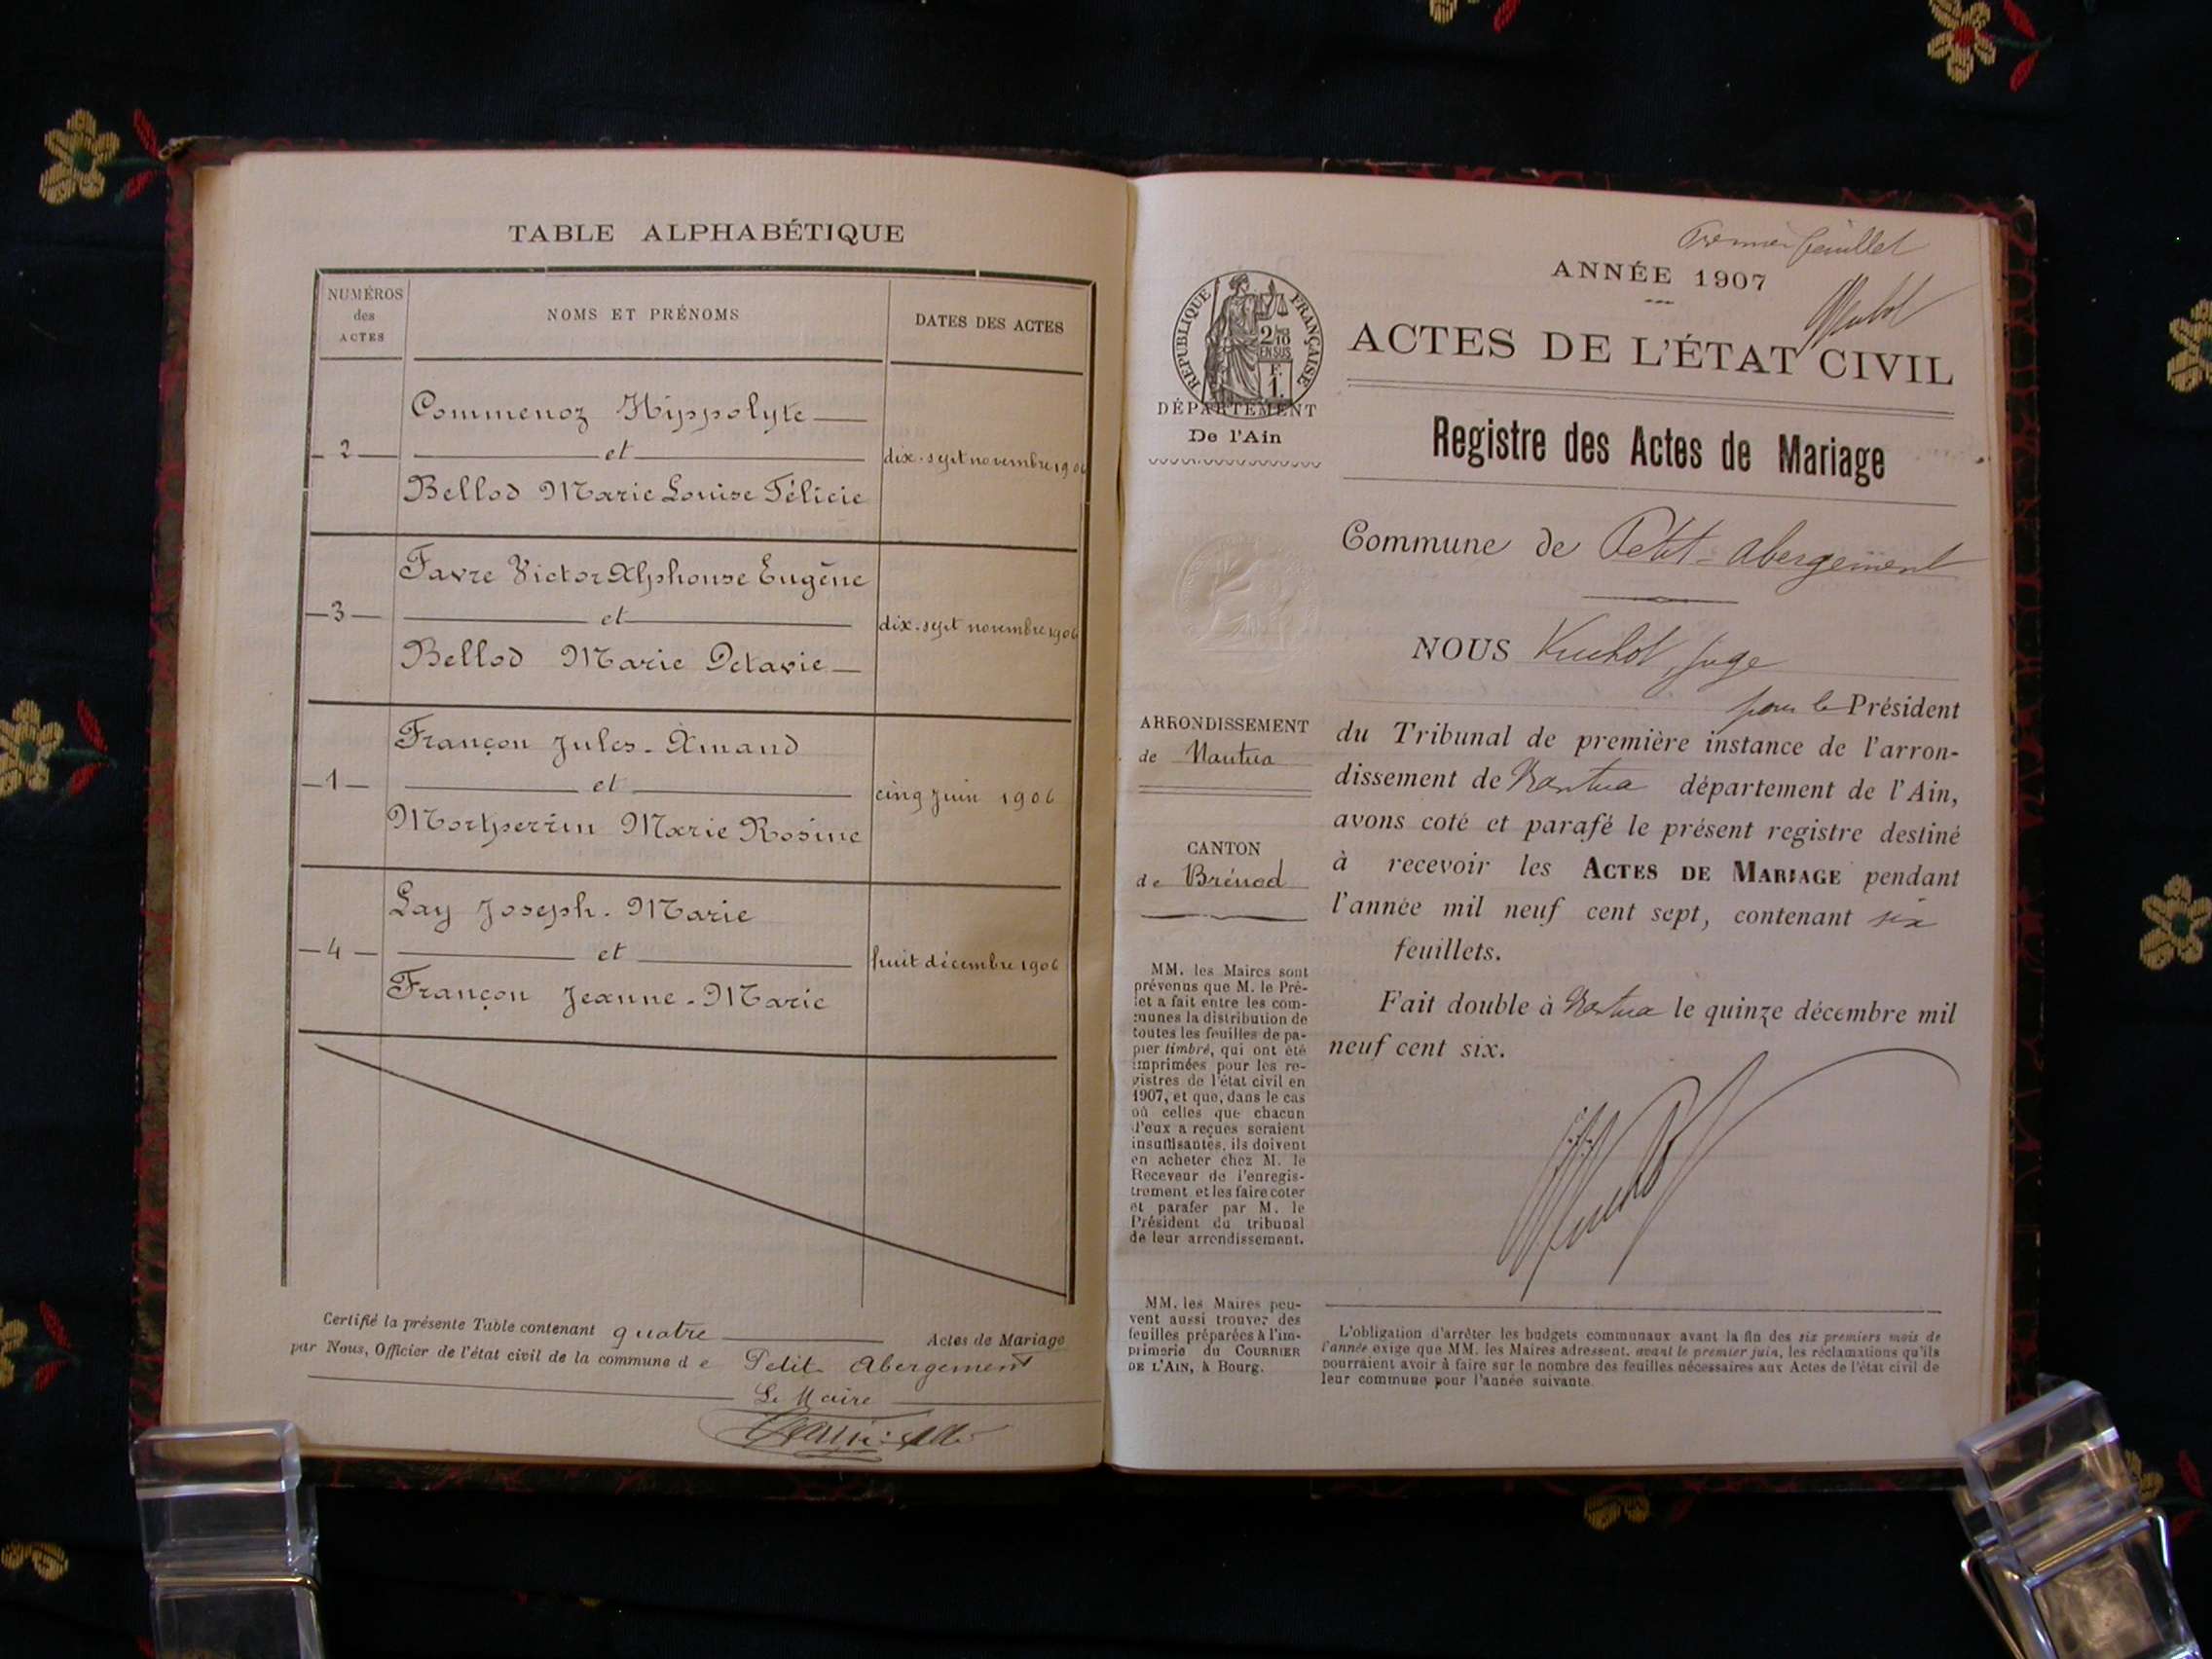 TABLE ALPHABÉTIQUE
NUMÉROS
des
ACTES
NOMS ET PRÉNOMS
DATES DES ACTES
Commenoz Hippolyte
2 et dix-sept novembre 1906
Bellod Marie Louise Félicie
Favre Victor Alphonse Eugène
3 et dix-sept novembre 1906
Bellod Marie Octavie
Françon Jules-Amand
1 et cinq juin 1906
Marie Rosine
Lay Joseph-Marie
4 et huit décembre 1906
Françon Jeanne-Marie
Certifié la présente Table contenant quatre Actes de Mariage
par Nous, Officier de l'état civil de la commune de Petit-Abergement
Le Maire
Premier feuillet
ANNÉE 1907
RÉPUBLIQUE FRANÇAISE
2/10
EN SUS
F.
1.
ACTES DE L'ÉTAT CIVIL
DÉPARTEMENT
De l'Ain
Registre des Actes de Mariage
Commune de Petit-Abergement
NOUS juge
pour le Président
du Tribunal de première instance de l'arron-
dissement de Nantua département de l'Ain,
avons coté et parafé le présent registre destiné
à recevoir les ACTES DE MARIAGE pendant
l'année mil neuf cent sept, contenant six
feuillets.
Fait double à Nantua le quinze décembre mil
neuf cent six.
ARRONDISSEMENT
de Nantua
CANTON
de Brénod
MM. les Maires sont
prévenus que M. le Pré-
fet a fait entre les com-
munes la distribution de
toutes les feuilles de pa-
pier timbré, qui ont été
imprimées pour les re-
gistres de l'état civil en
1907, et que, dans le cas
où celles que chacun
d'eux a reçues seraient
insuffisantes, ils doivent
en acheter chez M. le
Receveur de l'enregis-
trement et les faire coter
et parafer par M. le
Président du tribunal
de leur arrondissement.
MM. les Maires peu-
vent aussi trouver des
feuilles préparées à l'im-
primerie du COURRIER
DE L'AIN, à Bourg.
L'obligation d'arrêter les budgets communaux avant la fin des six premiers mois de
l'année exige que MM. les Maires adressent, avant le premier juin, les réclamations qu'ils
pourraient avoir à faire sur le nombre des feuilles nécessaires aux Actes de l'état civil de
leur commune pour l'année suivante.